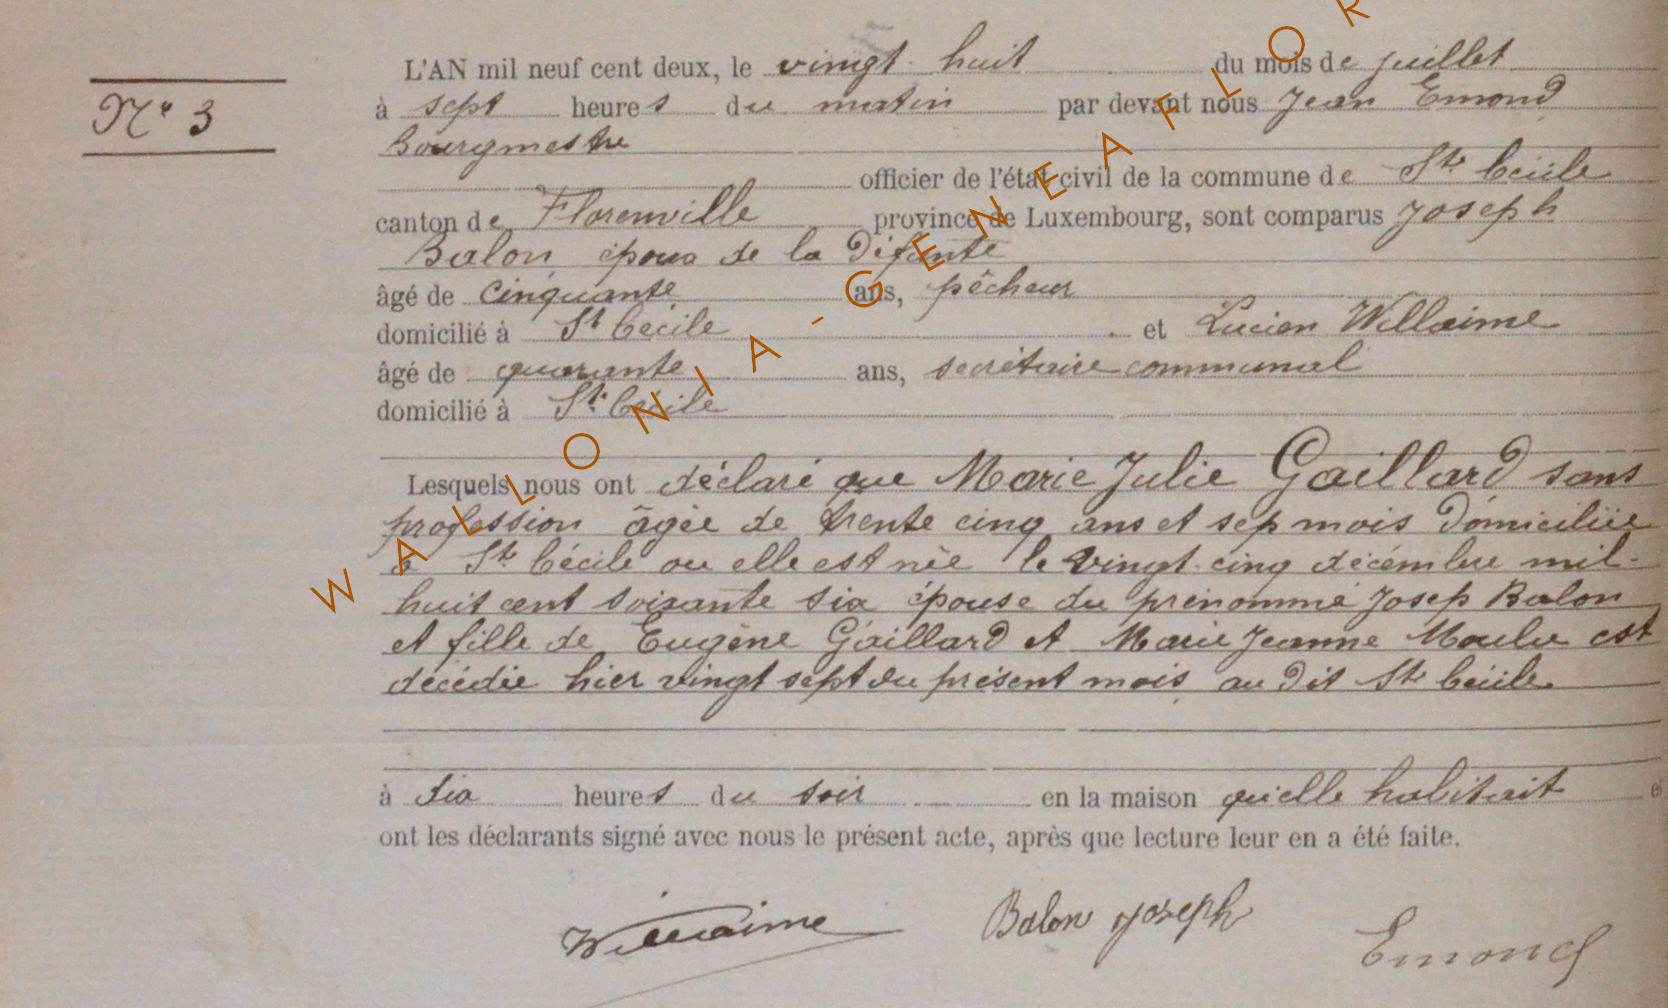 L'AN mil neuf cent deux, le vingt-huit du mois de juillet
N° 3
à sept heures du matin par devant nous Jean Emond
bourgmestre
officier de l'état civil de la commune de Ste Cécile
canton de Florenville province de Luxembourg, sont comparus Joseph
Balon époux de la défunte
âgé de cinquante ans, pêcheur
domicilié à St Cécile et Lucien Willaime
âgé de quarante ans, secrétaire communal
domicilié à Ste Cécile
Lesquels nous ont déclaré que Marie Julie Gaillard sans
profession âgée de trente cinq ans et sep mois domiciliée
à Ste Cécile ou elle est née le vingt-cinq décembre mil-
huit cent soixante six épouse du prénommé Josep Balon
et fille de Eugène Gaillard et Marie Jeanne Moulu est
décédée hier vingt sept du présent mois au dit Ste Cécile.
à six heures du soir en la maison qu'elle habitait et
ont les déclarants signé avec nous le présent acte, après que lecture leur en a été faite.
Willaime Balon Joseph Emond
WALLONIA-GENEAFLOR